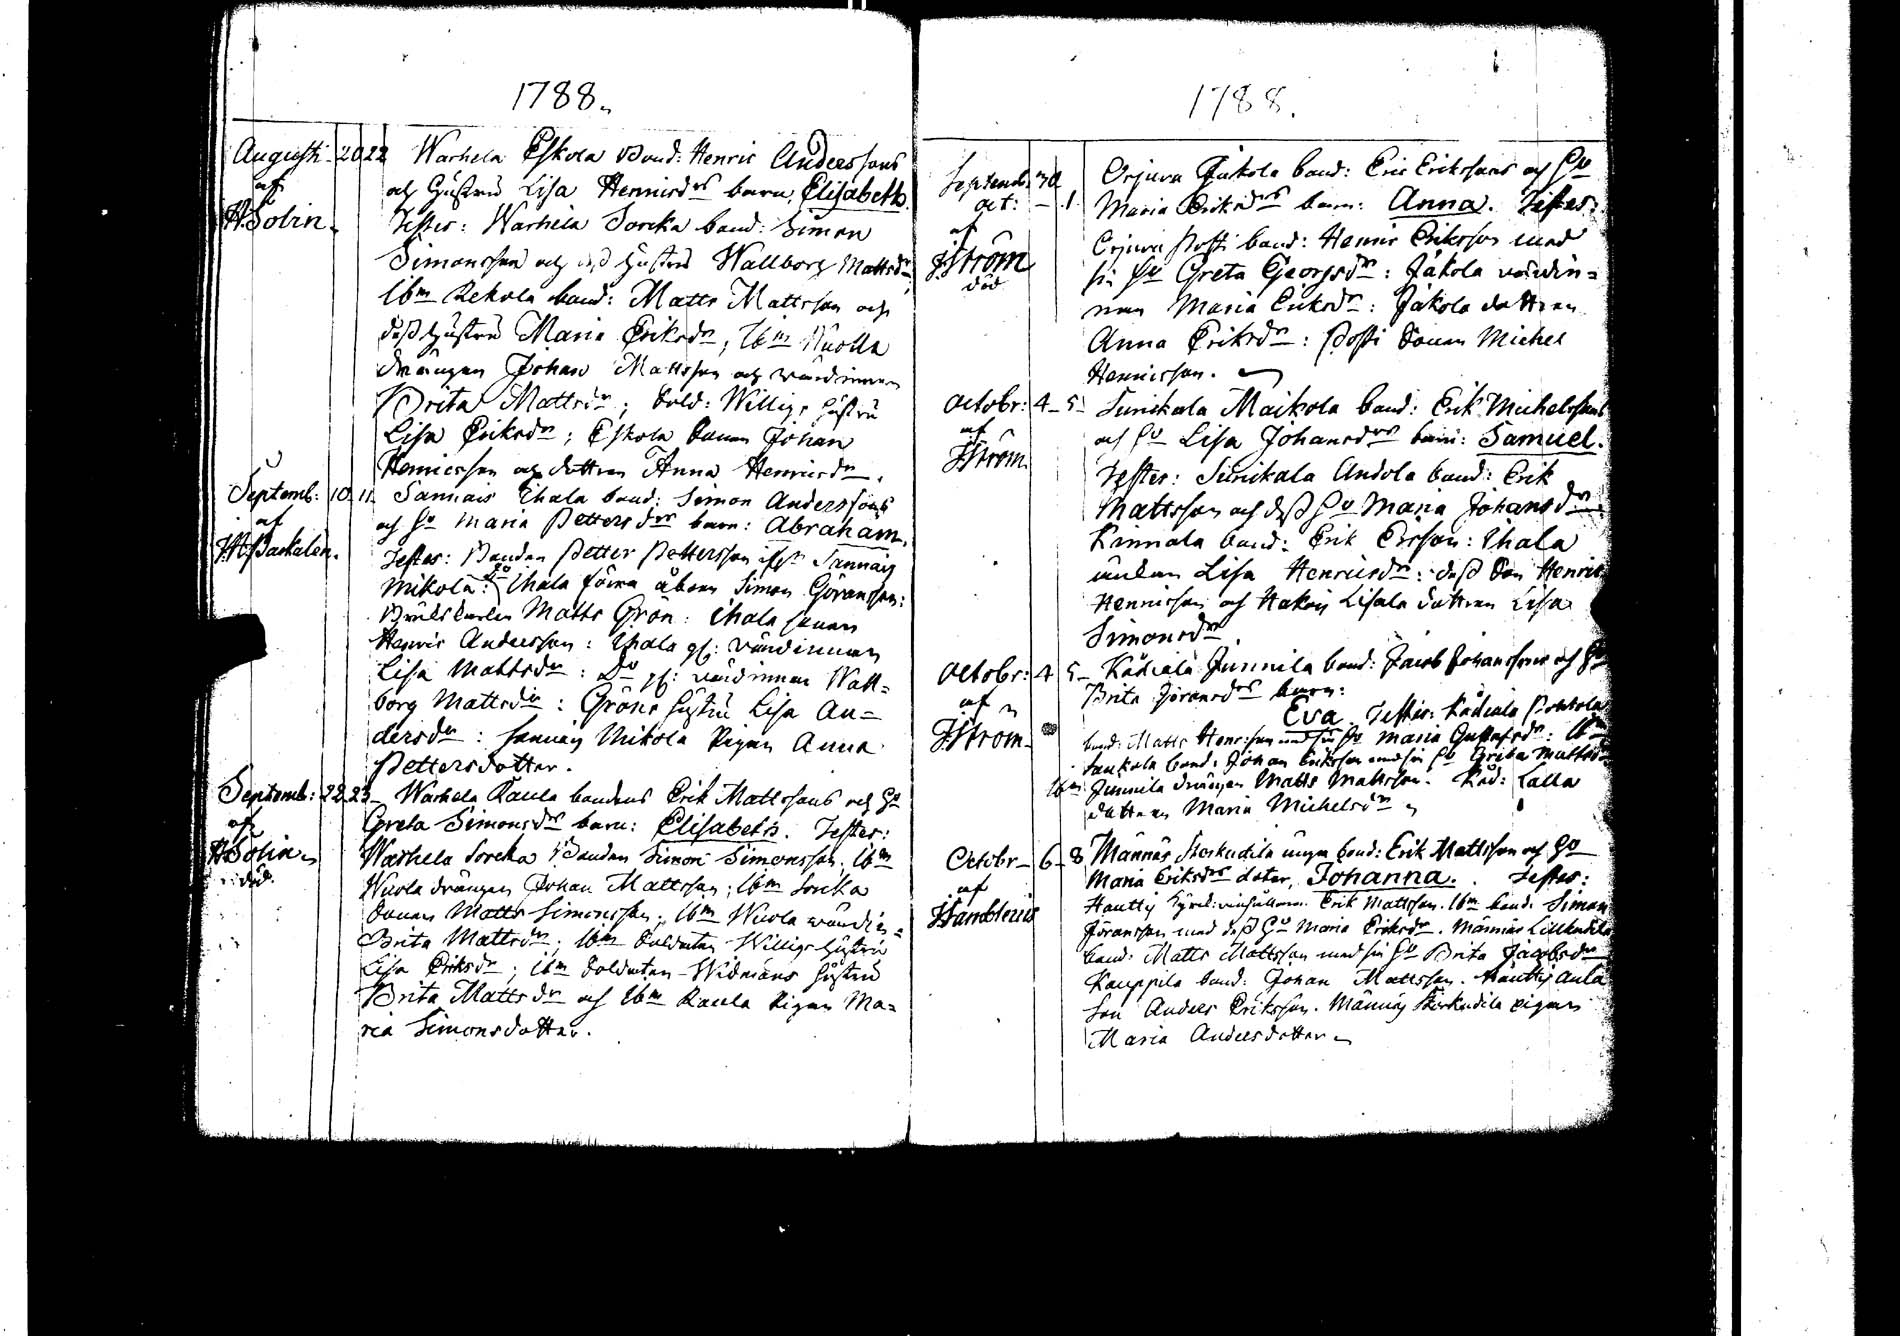 1788.
Augusti 20 22 Warhela Eskola Bond: Henric Anderssons
af och hustru Lisa Henricsdrs barn, Elisabeth.
H. Solin. Testes: Warhela Sorcka bond: Simon
Simonsson och dess hustru Wallborg Mattsdr
Ibm Rekola bond: Matts Mattsson och
dess hustru Maria Eriksdr, Ibm Nuolla
drängen Johan Mattsson och wärdinnan
Brita Mattsdr; Sold: Willigs hustru
Lisa Eriksdr; Eskola Sonen Johan
Henricsson och dottren Anna Henricsdr.
Septemb: 10 11 Sannais Ihala bond: Simon Anderssons
af och Hu Maria Pettersdrs barn: Abraham.
Testes: Bonden Petter Pettersson ifrån Sannais
Mikola: Ihala förra åboen Simon Göransson:
Matts Grön: Ihala sonen
Henric Andersson: Ihala gl: wärdinnan
Lisa Mattsdr: Do gl: wärdinnan Wall=
borg Mattsdr: Gröns hustru Lisa An=
dersdr: Sannais Mikola Pigan Anna
Pettersdotter.
Septemb: 22 23 Warhela Kaula bondens Erik Mattssons och Hu
af Greta Simonsdrs barn: Elisabeth. Testes:
H Solin Warhela Sorcka Bonden Simon Simonsson; Ibm
död. Nuola drängen Johan Mattsson; Ibm Sorcka
Sonen Matts Simonsson; Ibm Nuola wärdin=
Brita Mattsdr; Ibm Soldaten Willigs hustru
Lisa Eriksdr; Ibm Soldaten Widmans hustru
Brita Mattsdr och Ibm Kaula Pigan Ma=
ria Simonsdotter.
1788.
Septemb: 30 Orjura Jakola bond: Eric Erikssons och Hu
oct: 1. Maria Eriksdrs barn: Anna. Testes:
af Orjura Posti bond: Henric Eriksson med
J Ström sin Hu Greta Georgsdr: Jakola wärdin=
död nan Maria Eriksdr: Jakola dottren
Anna Eriksdr: Posti Sonen Michel
Henricsson.
Octobr: 4 5 Maikola bond: Erik Michelssons
af och Hu Lisa Johansdrs barn: Samuel.
J Ström Testes: Andola bond: Erik
Mattsson och dess Hu Maria Johansdr
Kinnala bond: Erik Ersson: Ihala
Lisa Henricsdr: dess Son Henric
Henricsson och Hakois Lisala dottren Lisa
Simonsdr.
Octobr: 4 5 Junnila bond: Jacob Johanssons och Hu
af Brita Göransdrs barn:
J Ström Eva. Testes:
bond: Matts Henrsson med sin Hu Maria Gustafsdr: Ibm
bond: Johan Eriksson med sin Hu Brita Mattsdr
Ibm Junnila drängen Matts Mattsson. Lalla
dottren Maria Michelsdr
Octobr 6 8 Männäs Storkudila unga bond: Erik Mattsson och Hu
af Maria Eriksdrs doter, Johanna. Testes:
Erik Mattsson. Ibm bond: Simon
Göransson med dess Hu Maria Eriksdr. Männäs Lillkudila
bond: Matts Mattsson med sin Hu Brita Jacobsdr
Kauppila bond: Johan Mattsson. Hauttis Aula
Son Anders Eriksson. Männäs Storkudila pigan
Maria Andersdotter